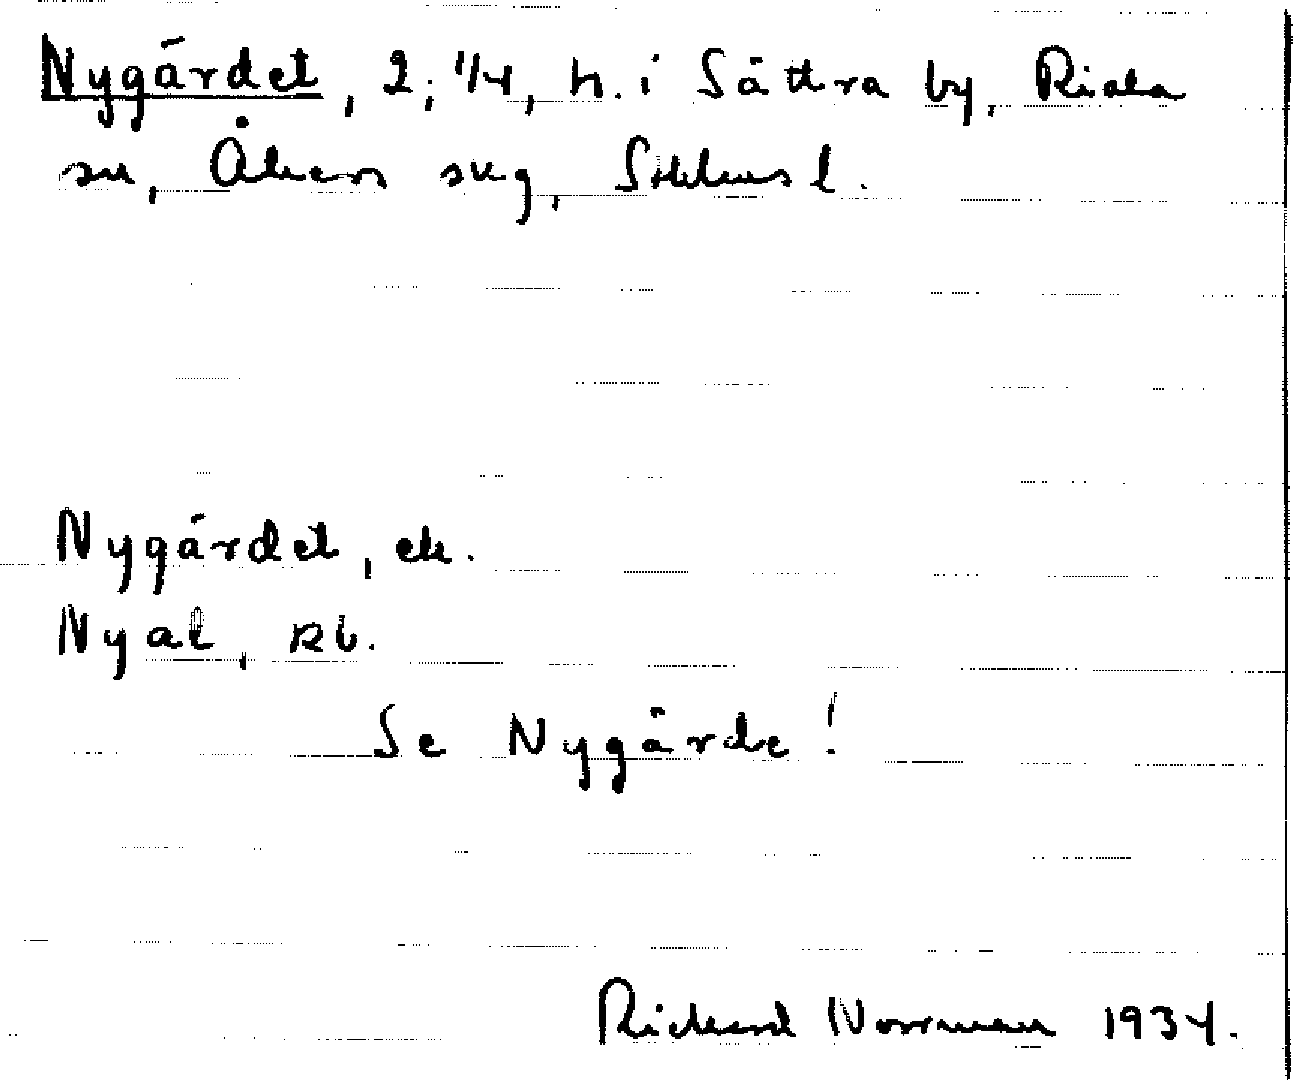 Nygärdet, 2; 1/4, h. i Sättra by, Riala
sn, Åkers skg, Sthlms l.
Nygärdet, ek.
Nyal, Rb.
Se Nygärde!
Rickard Norrman 1934.